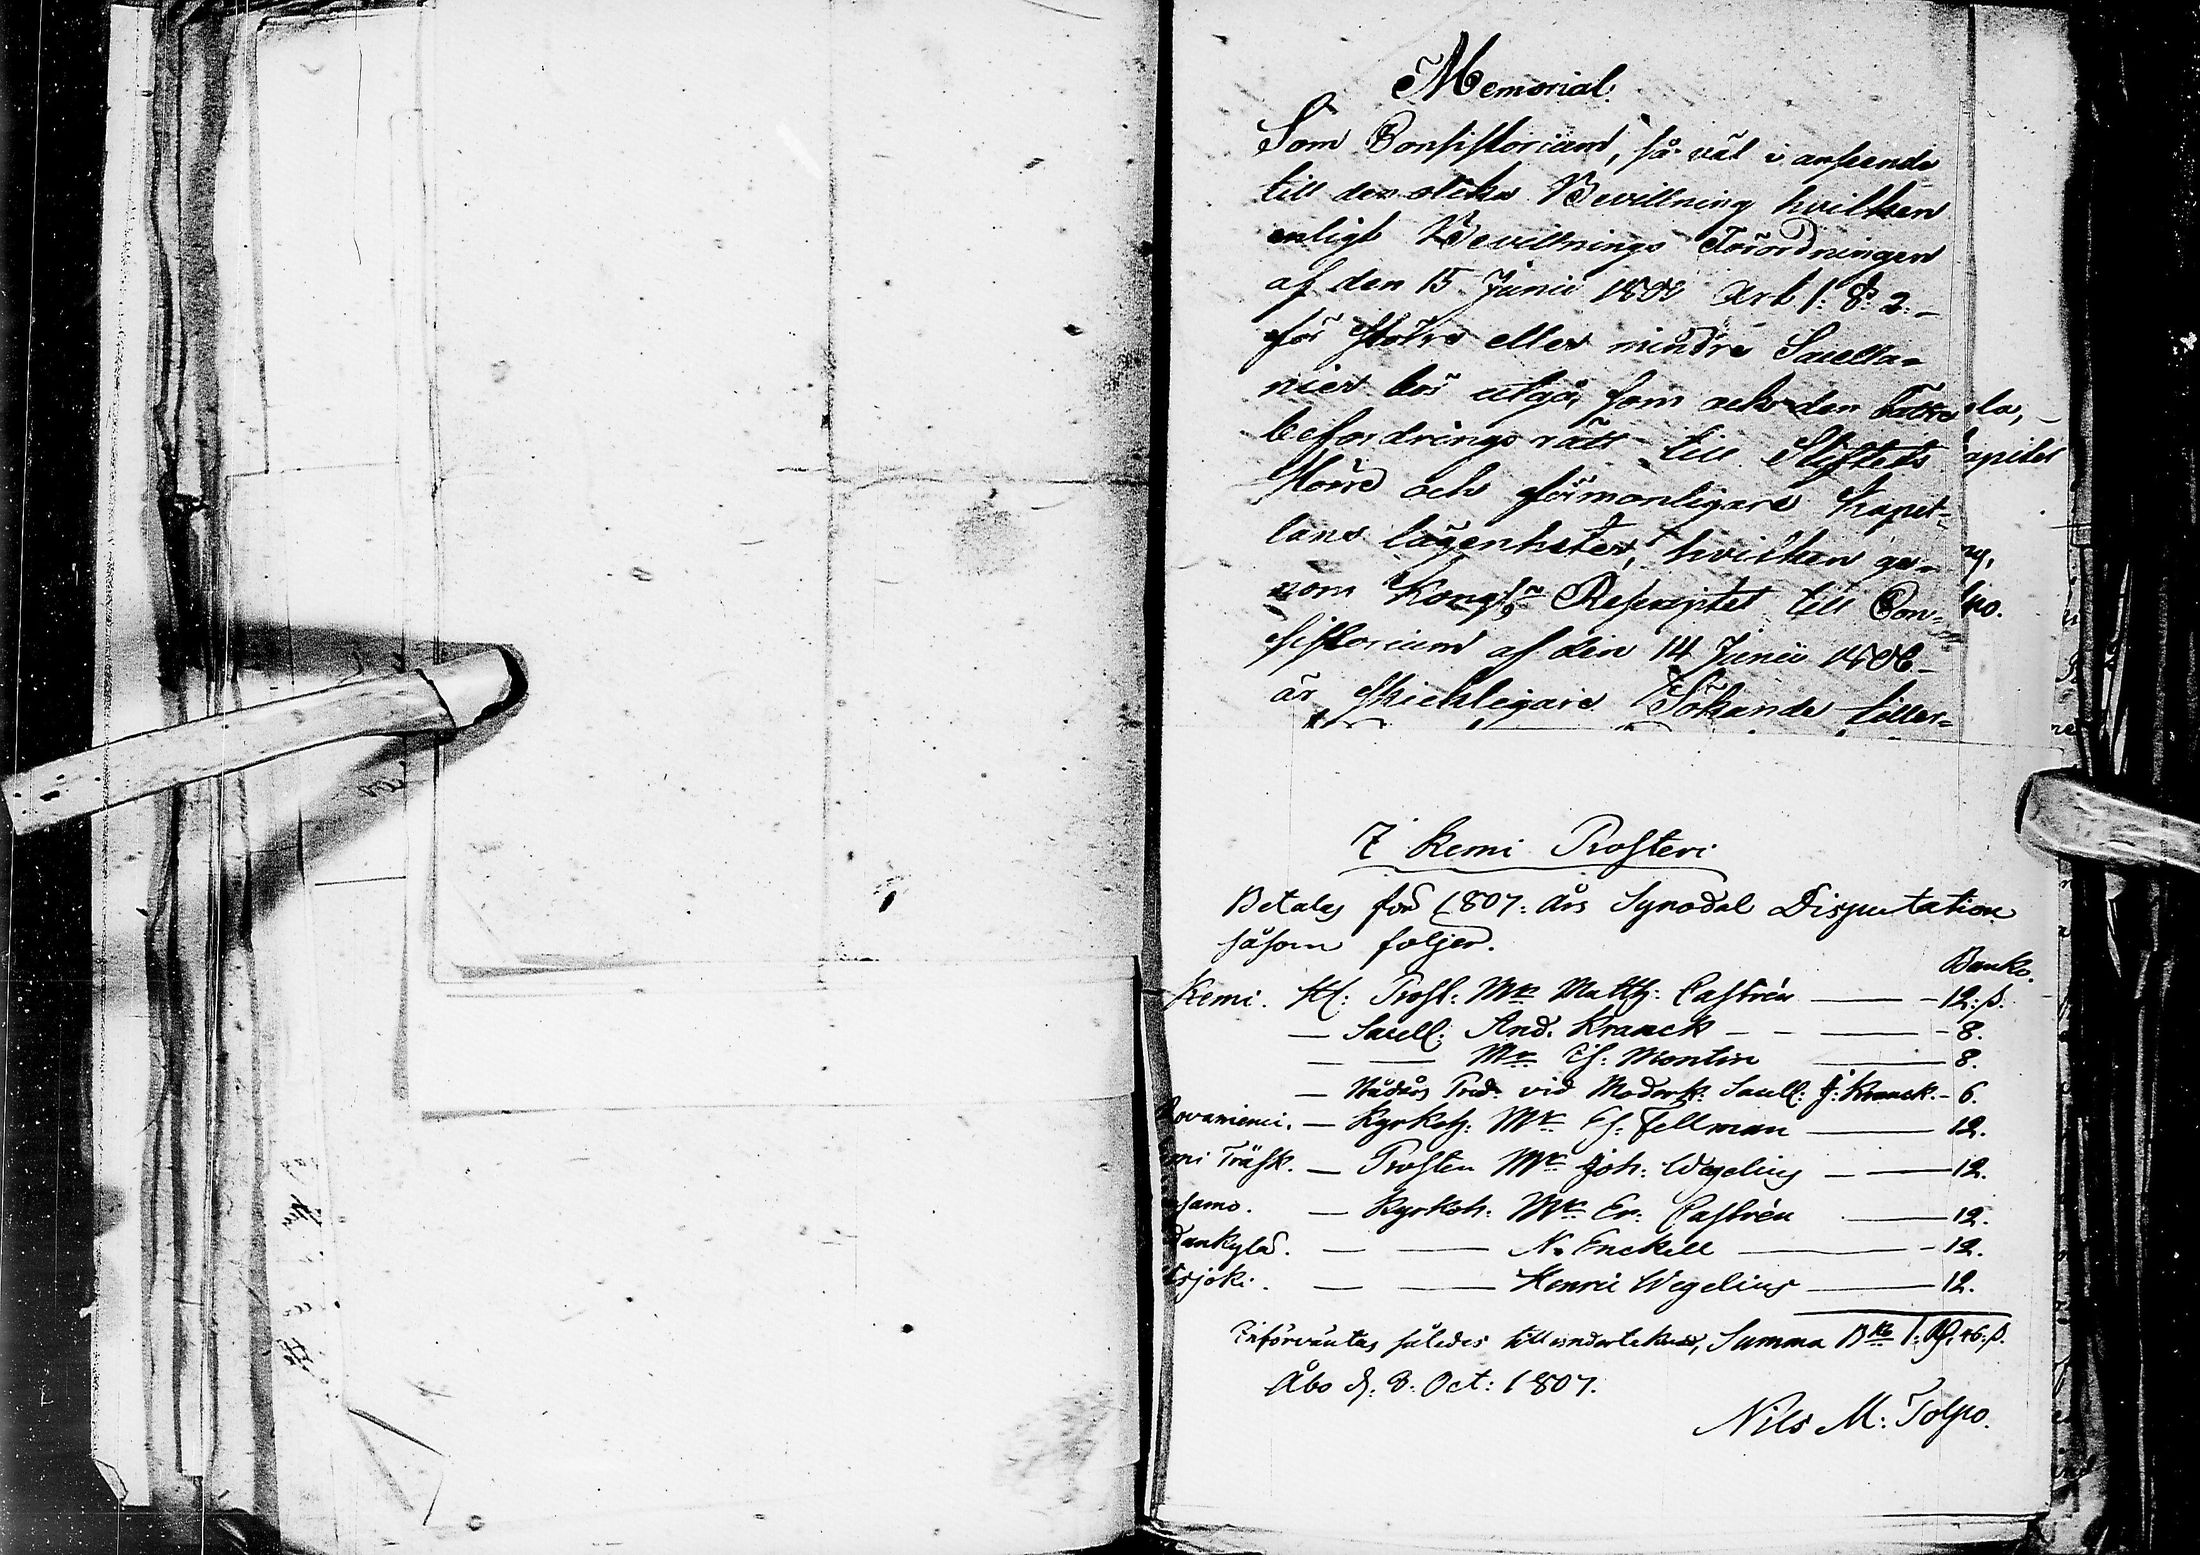 Memorial.
Som Consistorium, så väl i anseende
till den olika Bevillning hvilken
enligt Bevillnings Förordningen
af den 15 Junii 180 Art 1: §: 2:
för större eller mindre Sacella-
nier bör utgå, som ock den bättre
befordrings rätt till Stiftets
större och förmonligare Kapel-
lans lägenheter, hvilken ge-
nom Kongl. Rescriptet till Con-
sistorium af den 14 Junii 1806
är skickligare Sökande tiller-
la,
apitel
ng,
lpo.
I Kemi Prosteri
Betalas för 1807: års Synodal Disputation
såsom följer.
Banko.
Kemi. H: Prost: Mr Matth: Castrén — 12: s.
— Sacell: And. Kranck — 8.
— — Mr Es: Montin — 8.
— Nådårs Pred: vid Moderk: Sacell: J: Kranck. — 6.
Rovaniemi. — Kyrkoh: Mr Es: Fellman — 12.
mi Träsk. — Prosten Mr Joh: Wegelius — 12.
samo. — Kyrkoh: Mr Er: Castrén — 12.
dankylä. — — N. Enckell — 12.
tsjoki. — — Henric Wegelius — 12.
Införväntas således till underteknad, Summa Bko 1: Rd, 46: s.
Åbo d: 8: Oct: 1807.
Nils M: Tolpo.